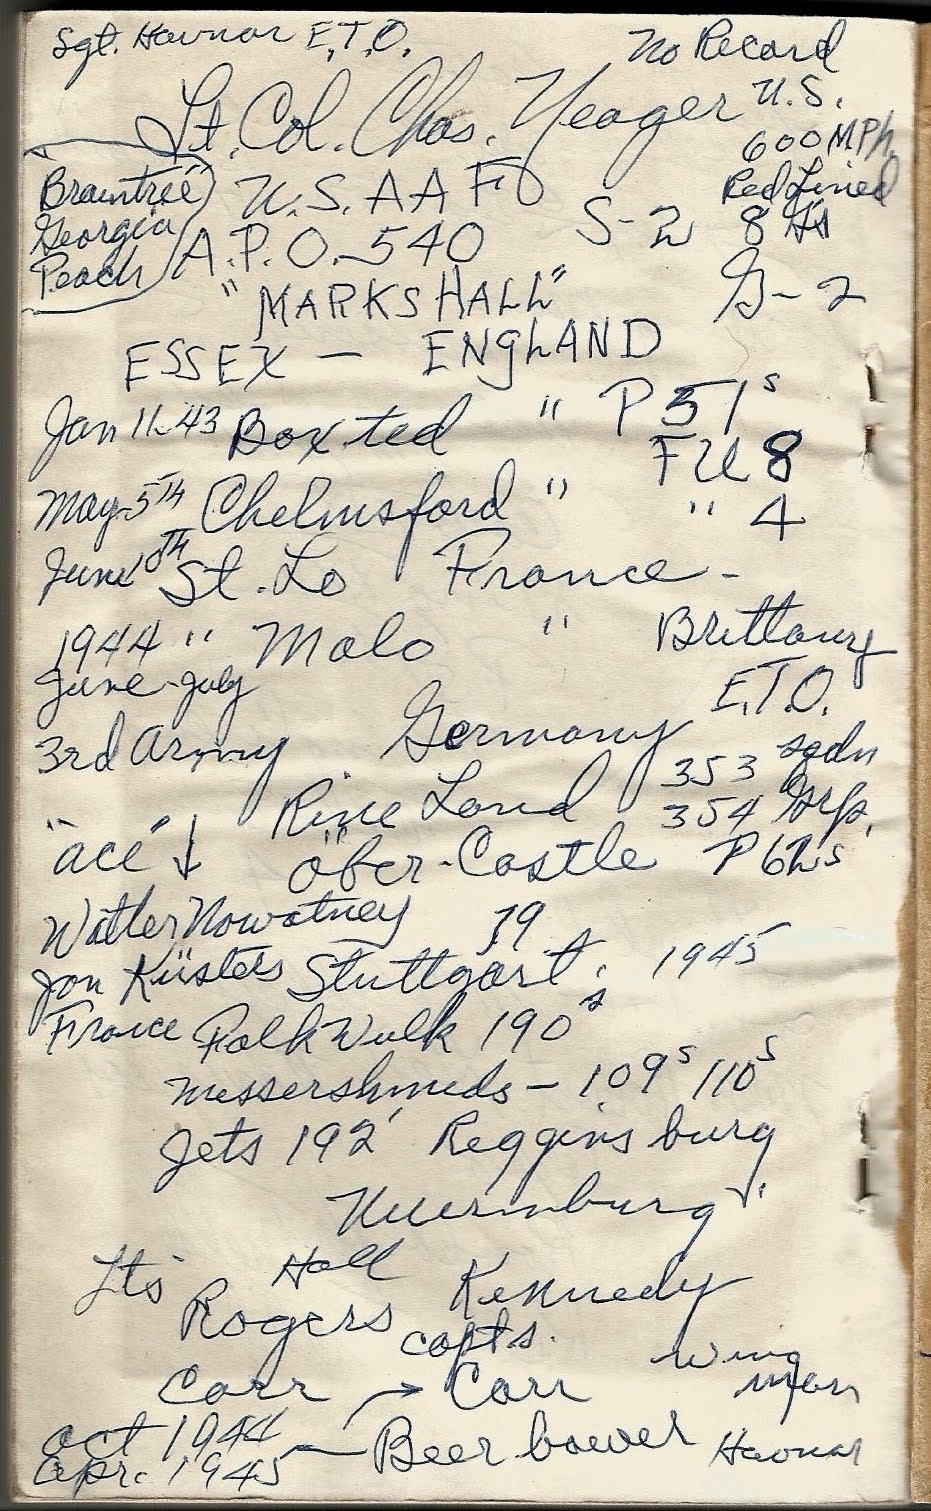 Sgt. Havnar E.T.O. No Record
Lt. Col. Chas. Yeager U.S.
600 MPH.
Braintree U.S.AAF Red Lined
Georgia A.P.O. 540 S-2 8 Gs
Peach
"MARKS HALL" G-2
ESSEX — ENGLAND
Jan 11-43 Boxted " P 51s
FU 8
May-5TH Chelmsford " " 4
June 10TH St. Lo France -
1944 " Malo " Brittany
June-July E.T.O.
3rd Army Germany 353 sqdn
Rine Land 354 Grp.
"ace" ↓ Öber-Castle P 62s
Walter Nowatney 79
Jon Küsters Stuttgart. 1945
France Falk Wulk 190s
Messershmeds - 109s 110s
Jets 192 Reggins burg
Nuernburg"
Lts Hall
Rogers Kennedy
capts.
Carr → Carr wing man
Oct 1944
Apr. 1945 — Beer bower Havnar